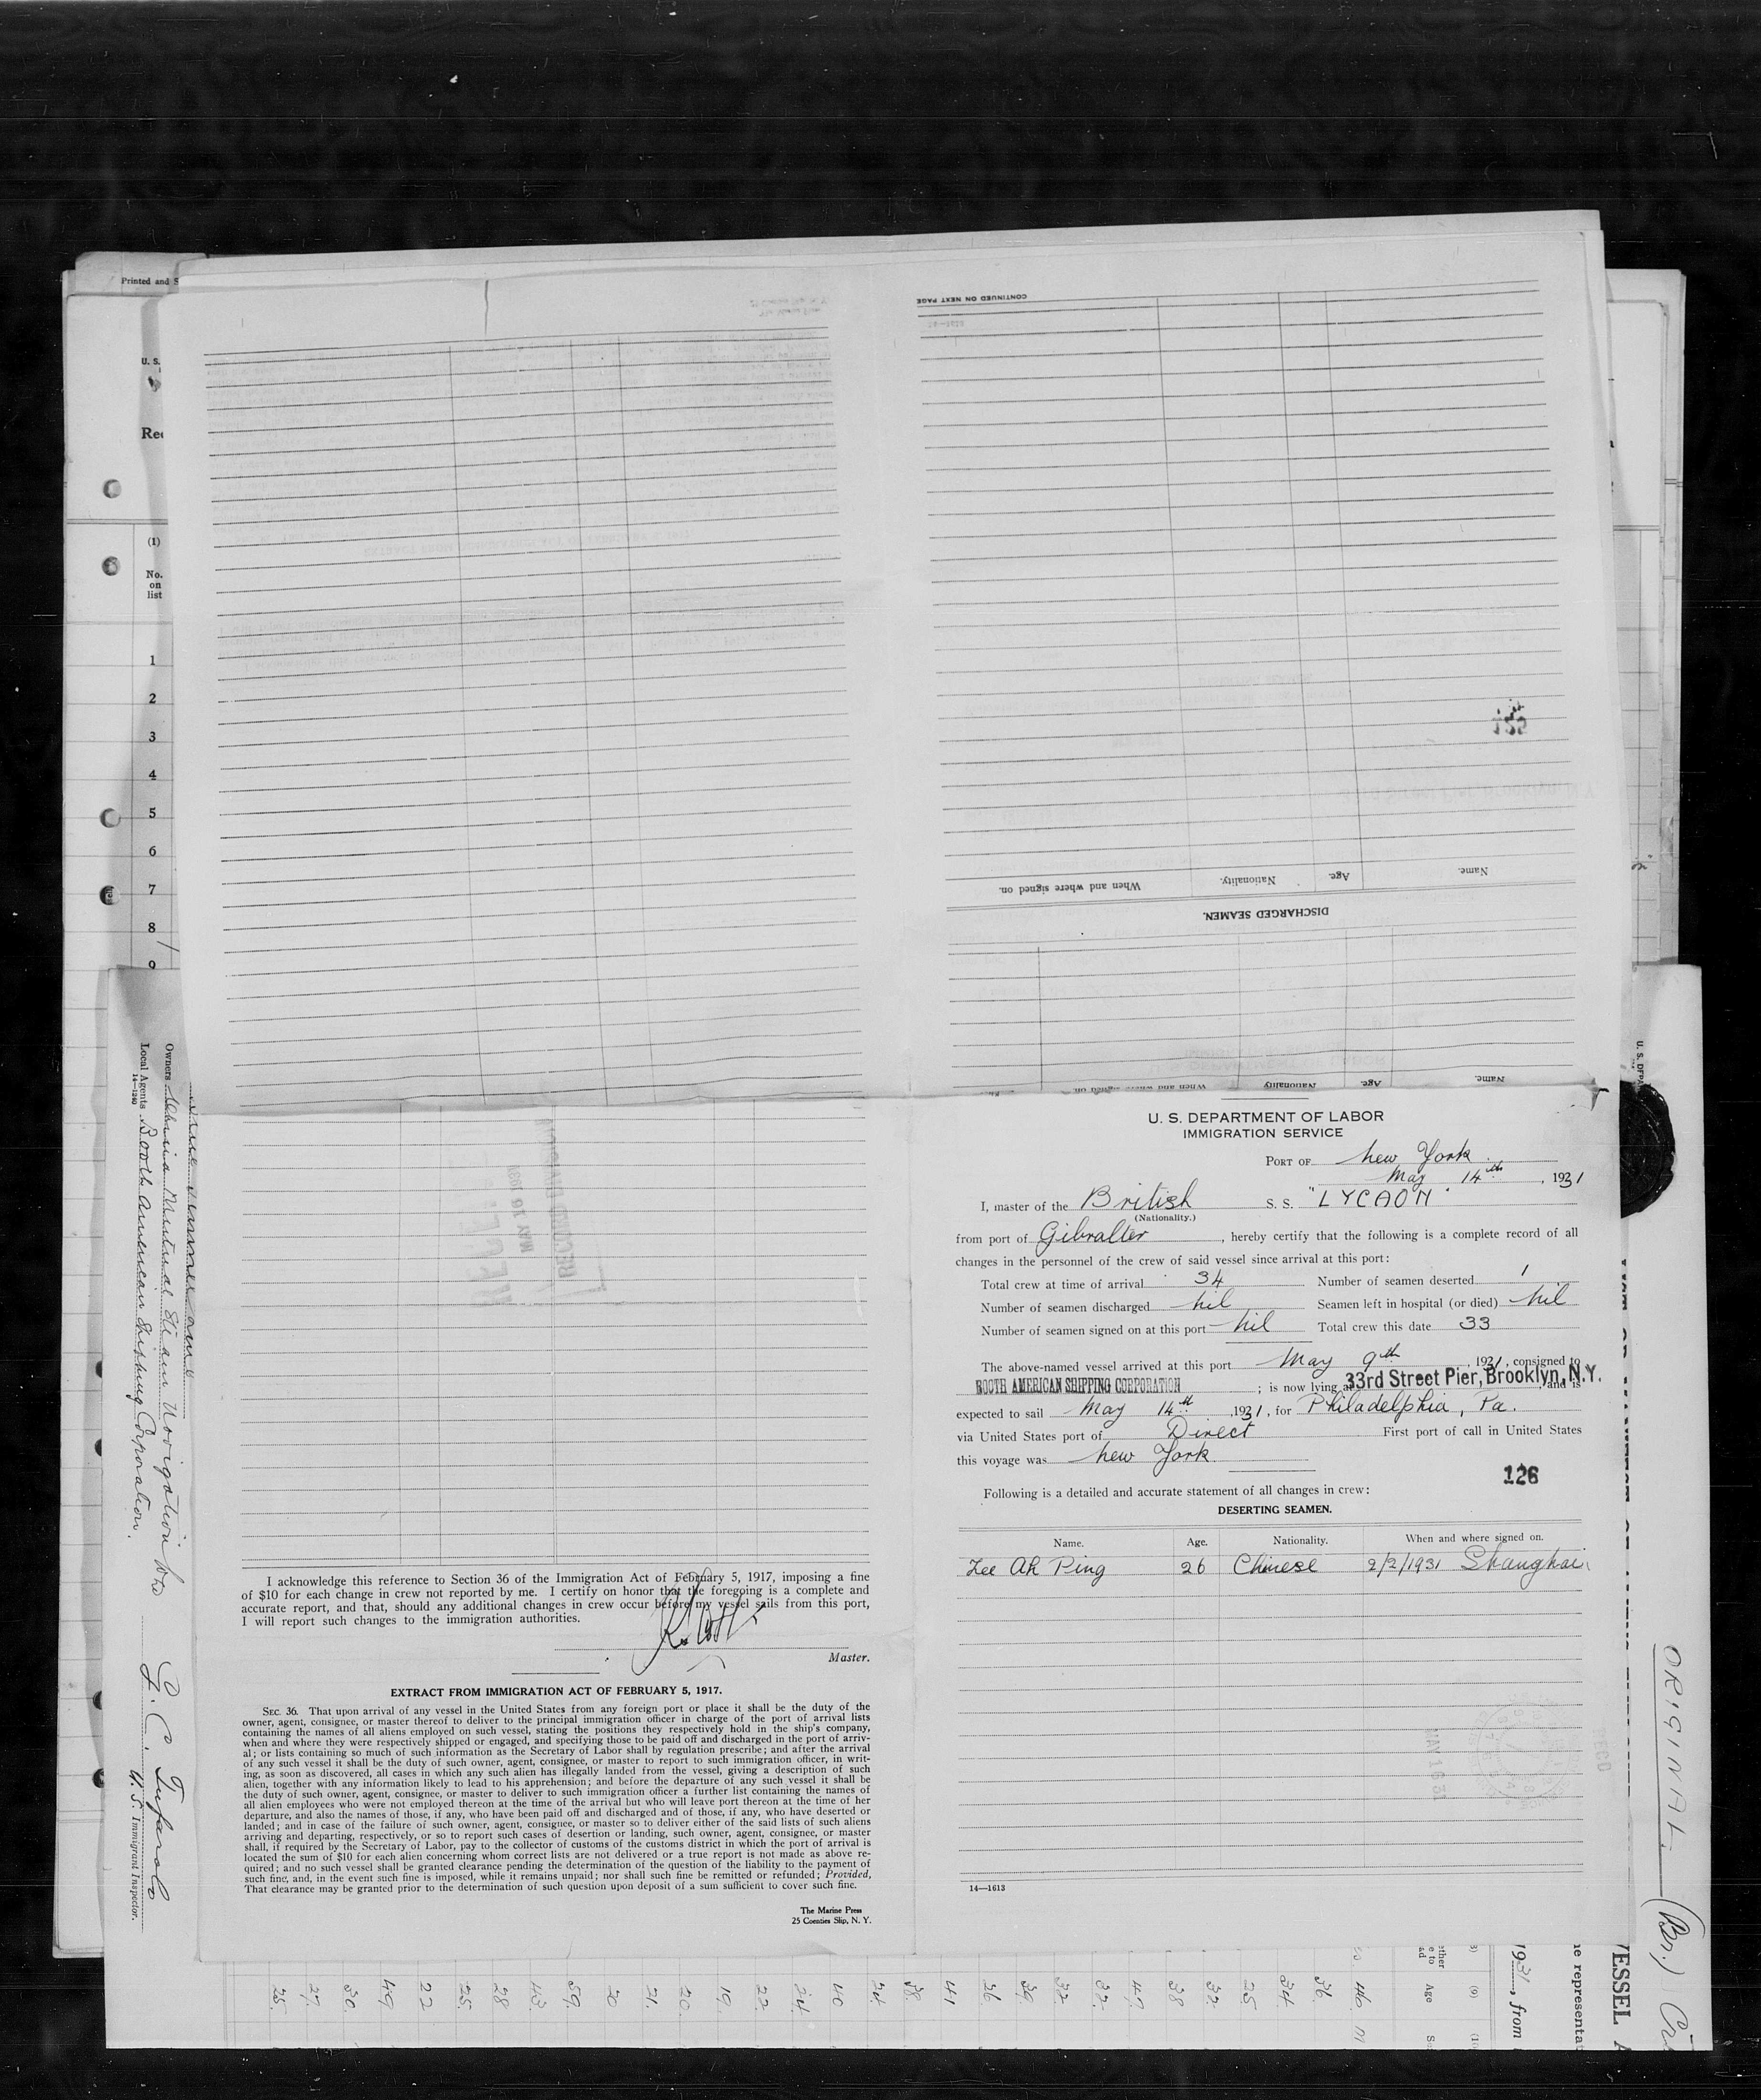 Printed and S
U. S.
Rec
(1)
No.
on
list
1
2
3
4
5
6
7
8
9
CONTINUED ON NEXT PAGE
When and where signed on.
Nationality.
Age.
Name.
DISCHARGED SEAMEN.
When and where signed on.
Nationality
Age.
Name.
Local Agents Booth American Shipping Corporation.
14—1240
U. S. Immigrant Inspector.
U. S. DEPARTMENT OF LABOR
IMMIGRATION SERVICE
PORT OF New York
May 14th, 1931
I, master of the British S. S. "LYCAON"
(Nationality.)
from port of Gibralter, hereby certify that the following is a complete record of all
changes in the personnel of the crew of said vessel since arrival at this port:
Total crew at time of arrival 34 Number of seamen deserted 1
Number of seamen discharged nil Seamen left in hospital (or died) nil
Number of seamen signed on at this port nil Total crew this date 33
The above-named vessel arrived at this port May 9th, 1931, consigned to
BOOTH AMERICAN SHIPPING CORPORATION ; is now lying at 33rd Street Pier, Brooklyn, N.Y. , and is
expected to sail May 14th, 1931, for Philadelphia, Pa.
via United States port of Direct First port of call in United States
this voyage was New York
126
Following is a detailed and accurate statement of all changes in crew:
DESERTING SEAMEN.
Name. Age. Nationality. When and where signed on.
Zee Ah Ping 26 Chinese 2/2/1931 Shanghai
14—1613
I acknowledge this reference to Section 36 of the Immigration Act of February 5, 1917, imposing a fine
of $10 for each change in crew not reported by me. I certify on honor that the foregoing is a complete and
accurate report, and that, should any additional changes in crew occur before my vessel sails from this port,
I will report such changes to the immigration authorities.
Master.
EXTRACT FROM IMMIGRATION ACT OF FEBRUARY 5, 1917.
SEC. 36. That upon arrival of any vessel in the United States from any foreign port or place it shall be the duty of the
owner, agent, consignee, or master thereof to deliver to the principal immigration officer in charge of the port of arrival lists
containing the names of all aliens employed on such vessel, stating the positions they respectively hold in the ship's company,
when and where they were respectively shipped or engaged, and specifying those to be paid off and discharged in the port of arriv-
al; or lists containing so much of such information as the Secretary of Labor shall by regulation prescribe; and after the arrival
of any such vessel it shall be the duty of such owner, agent, consignee, or master to report to such immigration officer, in writ-
ing, as soon as discovered, all cases in which any such alien has illegally landed from the vessel, giving a description of such
alien, together with any information likely to lead to his apprehension; and before the departure of any such vessel it shall be
the duty of such owner, agent, consignee, or master to deliver to such immigration officer a further list containing the names of
all alien employees who were not employed thereon at the time of the arrival but who will leave port thereon at the time of her
departure, and also the names of those, if any, who have been paid off and discharged and of those, if any, who have deserted or
landed; and in case of the failure of such owner, agent, consignee, or master so to deliver either of the said lists of such aliens
arriving and departing, respectively, or so to report such cases of desertion or landing, such owner, agent, consignee, or master
shall, if required by the Secretary of Labor, pay to the collector of customs of the customs district in which the port of arrival is
located the sum of $10 for each alien concerning whom correct lists are not delivered or a true report is not made as above re-
quired; and no such vessel shall be granted clearance pending the determination of the question of the liability to the payment of
such fine, and, in the event such fine is imposed, while it remains unpaid; nor shall such fine be remitted or refunded; Provided,
That clearance may be granted prior to the determination of such question upon deposit of a sum sufficient to cover such fine.
The Marine Press
25 Coenties Slip, N. Y.
ORIGINAL. (Br.)
VESSEL
1931, from
(9)
Age